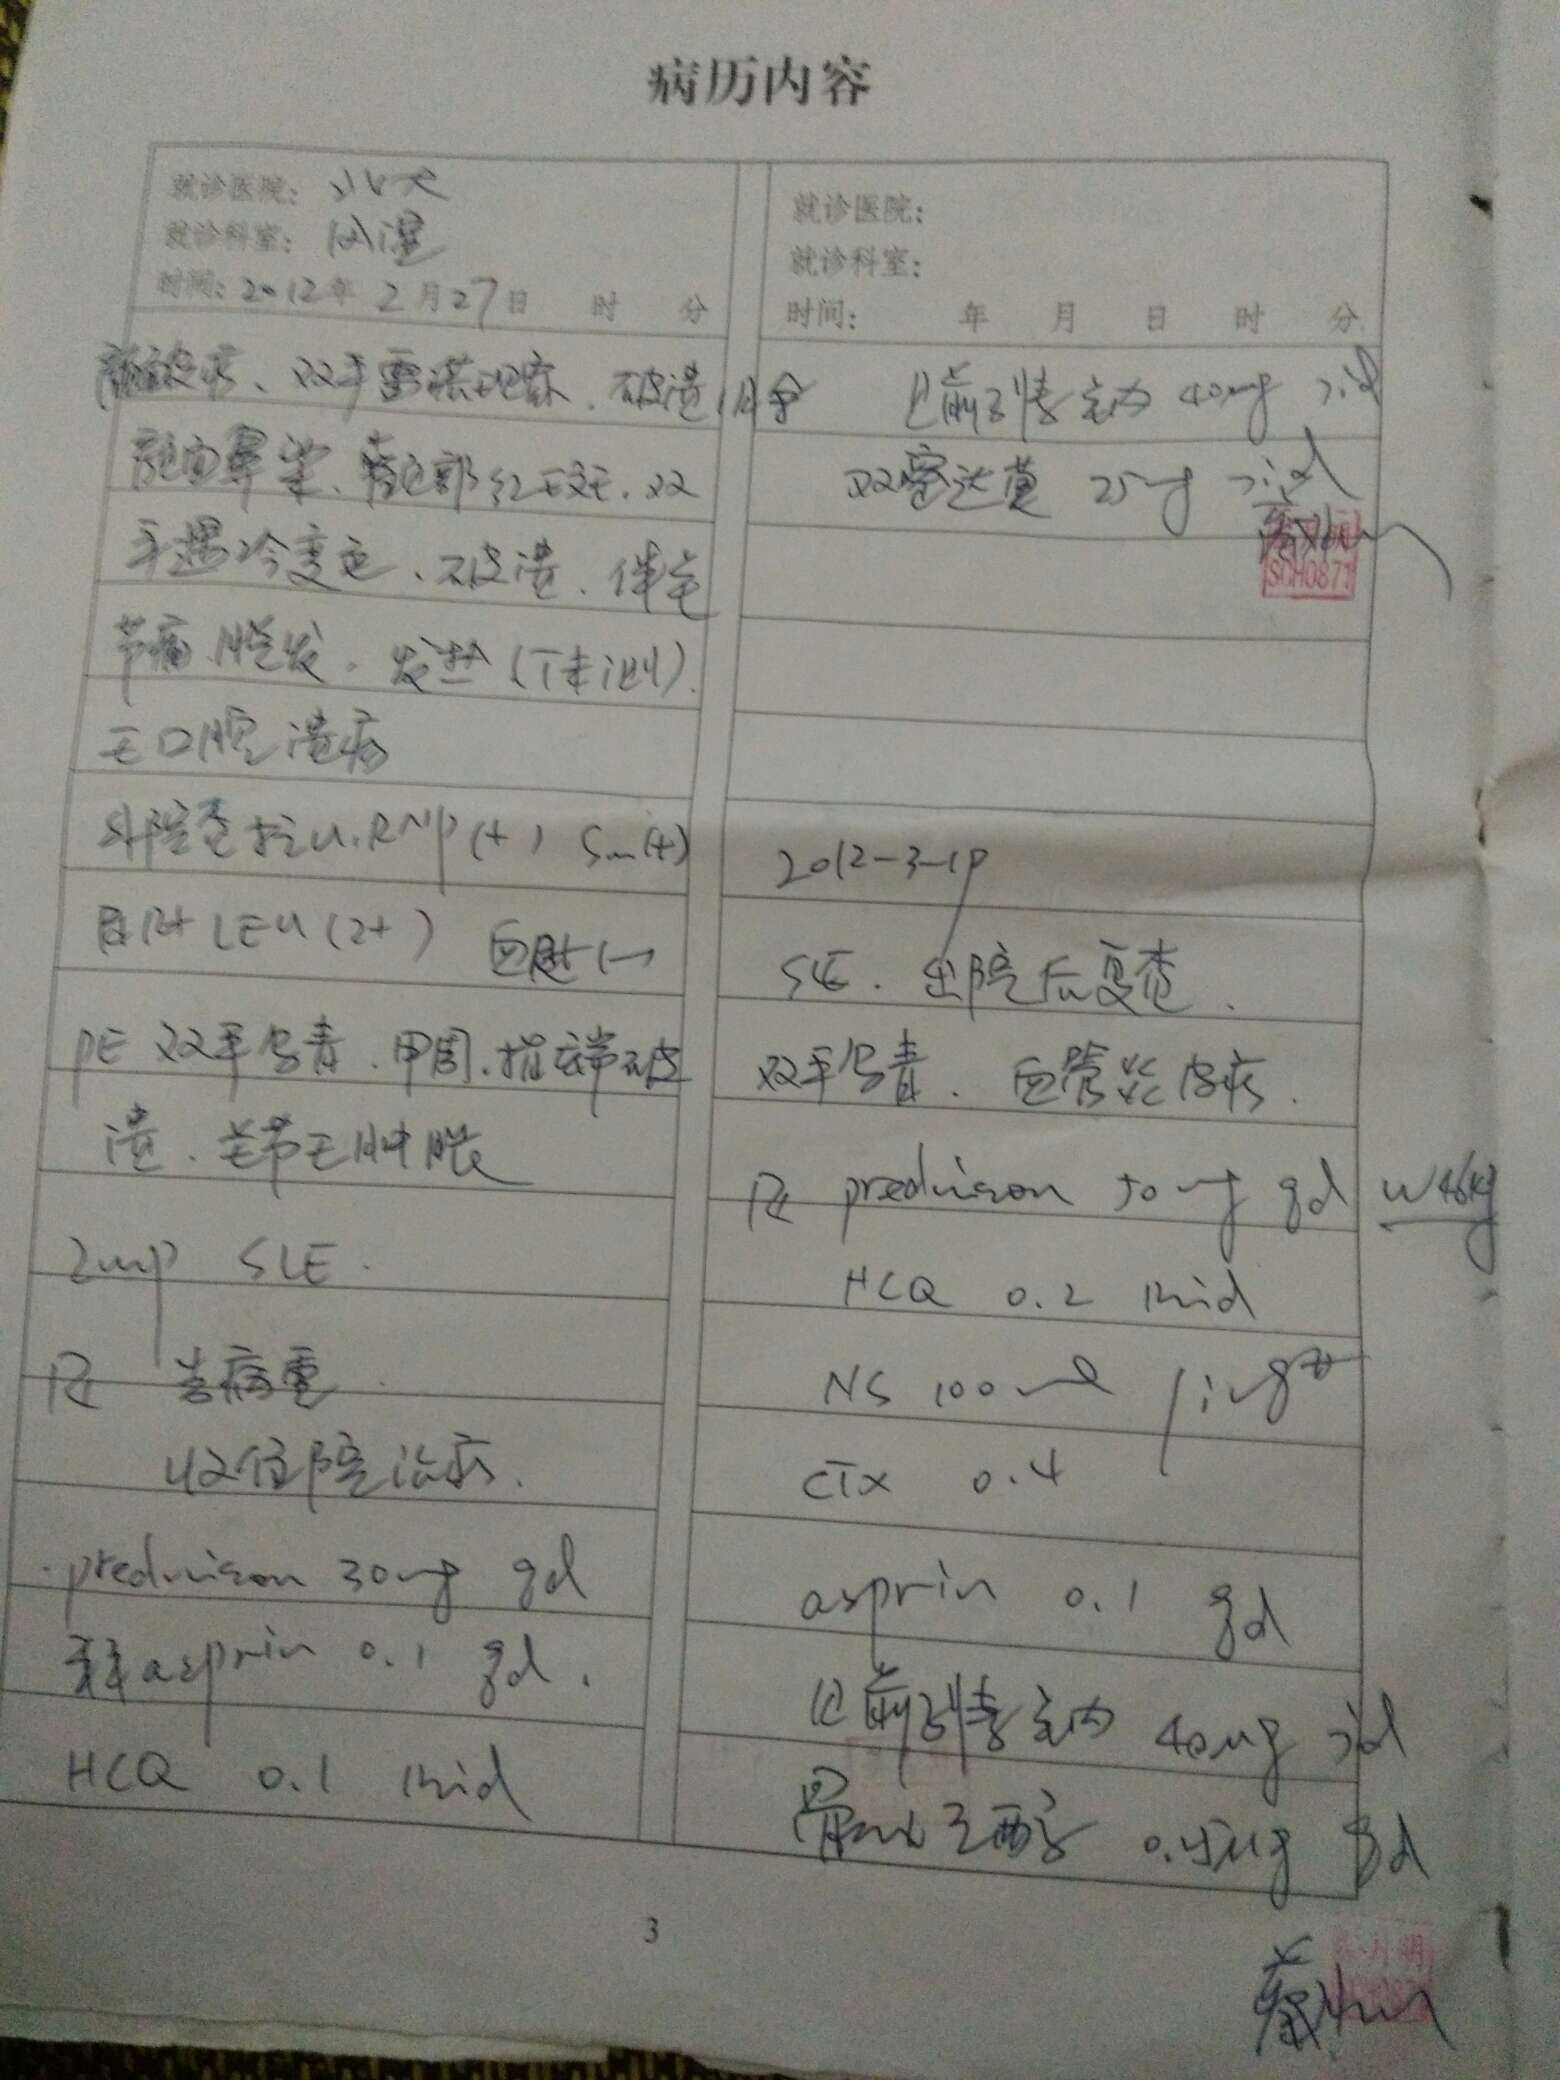 病历内容
就诊医院: 北大
就诊科室: 风湿
时间: 2012年 2月27日 时 分
颜面皮疹、双手雷诺现象、破溃1月余
颜面鼻梁、耳廓红斑、双
手遇冷变色、破溃、伴关
节痛、脱发、发热(T未测).
无口腔溃疡
外院查抗u1RNP(+) Sm(+)
尿Rt LEU(2+) 血Rt(-)
PE 双手发青、甲周、指端破
溃、关节无肿胀
Imp SLE.
Rx 告病重.
收住院治疗.
prednison 30mg qd
aspirin 0.1 qd.
HCQ 0.1 Bid
就诊医院:
就诊科室:
时间: 年 月 日 时 分
贝前列素钠 40μg tid
双嘧达莫 25mg tid
SCH087
2012-3-19
SLE. 出院后复查.
双手发青. 血管炎皮疹.
Rx prednison 50mg qd W46kg
HCQ 0.2 Bid
NS 100ml / ivgtt
CTX 0.4
asprin 0.1 qd
贝前列素钠 40μg tid
骨化三醇 0.25μg qd
3